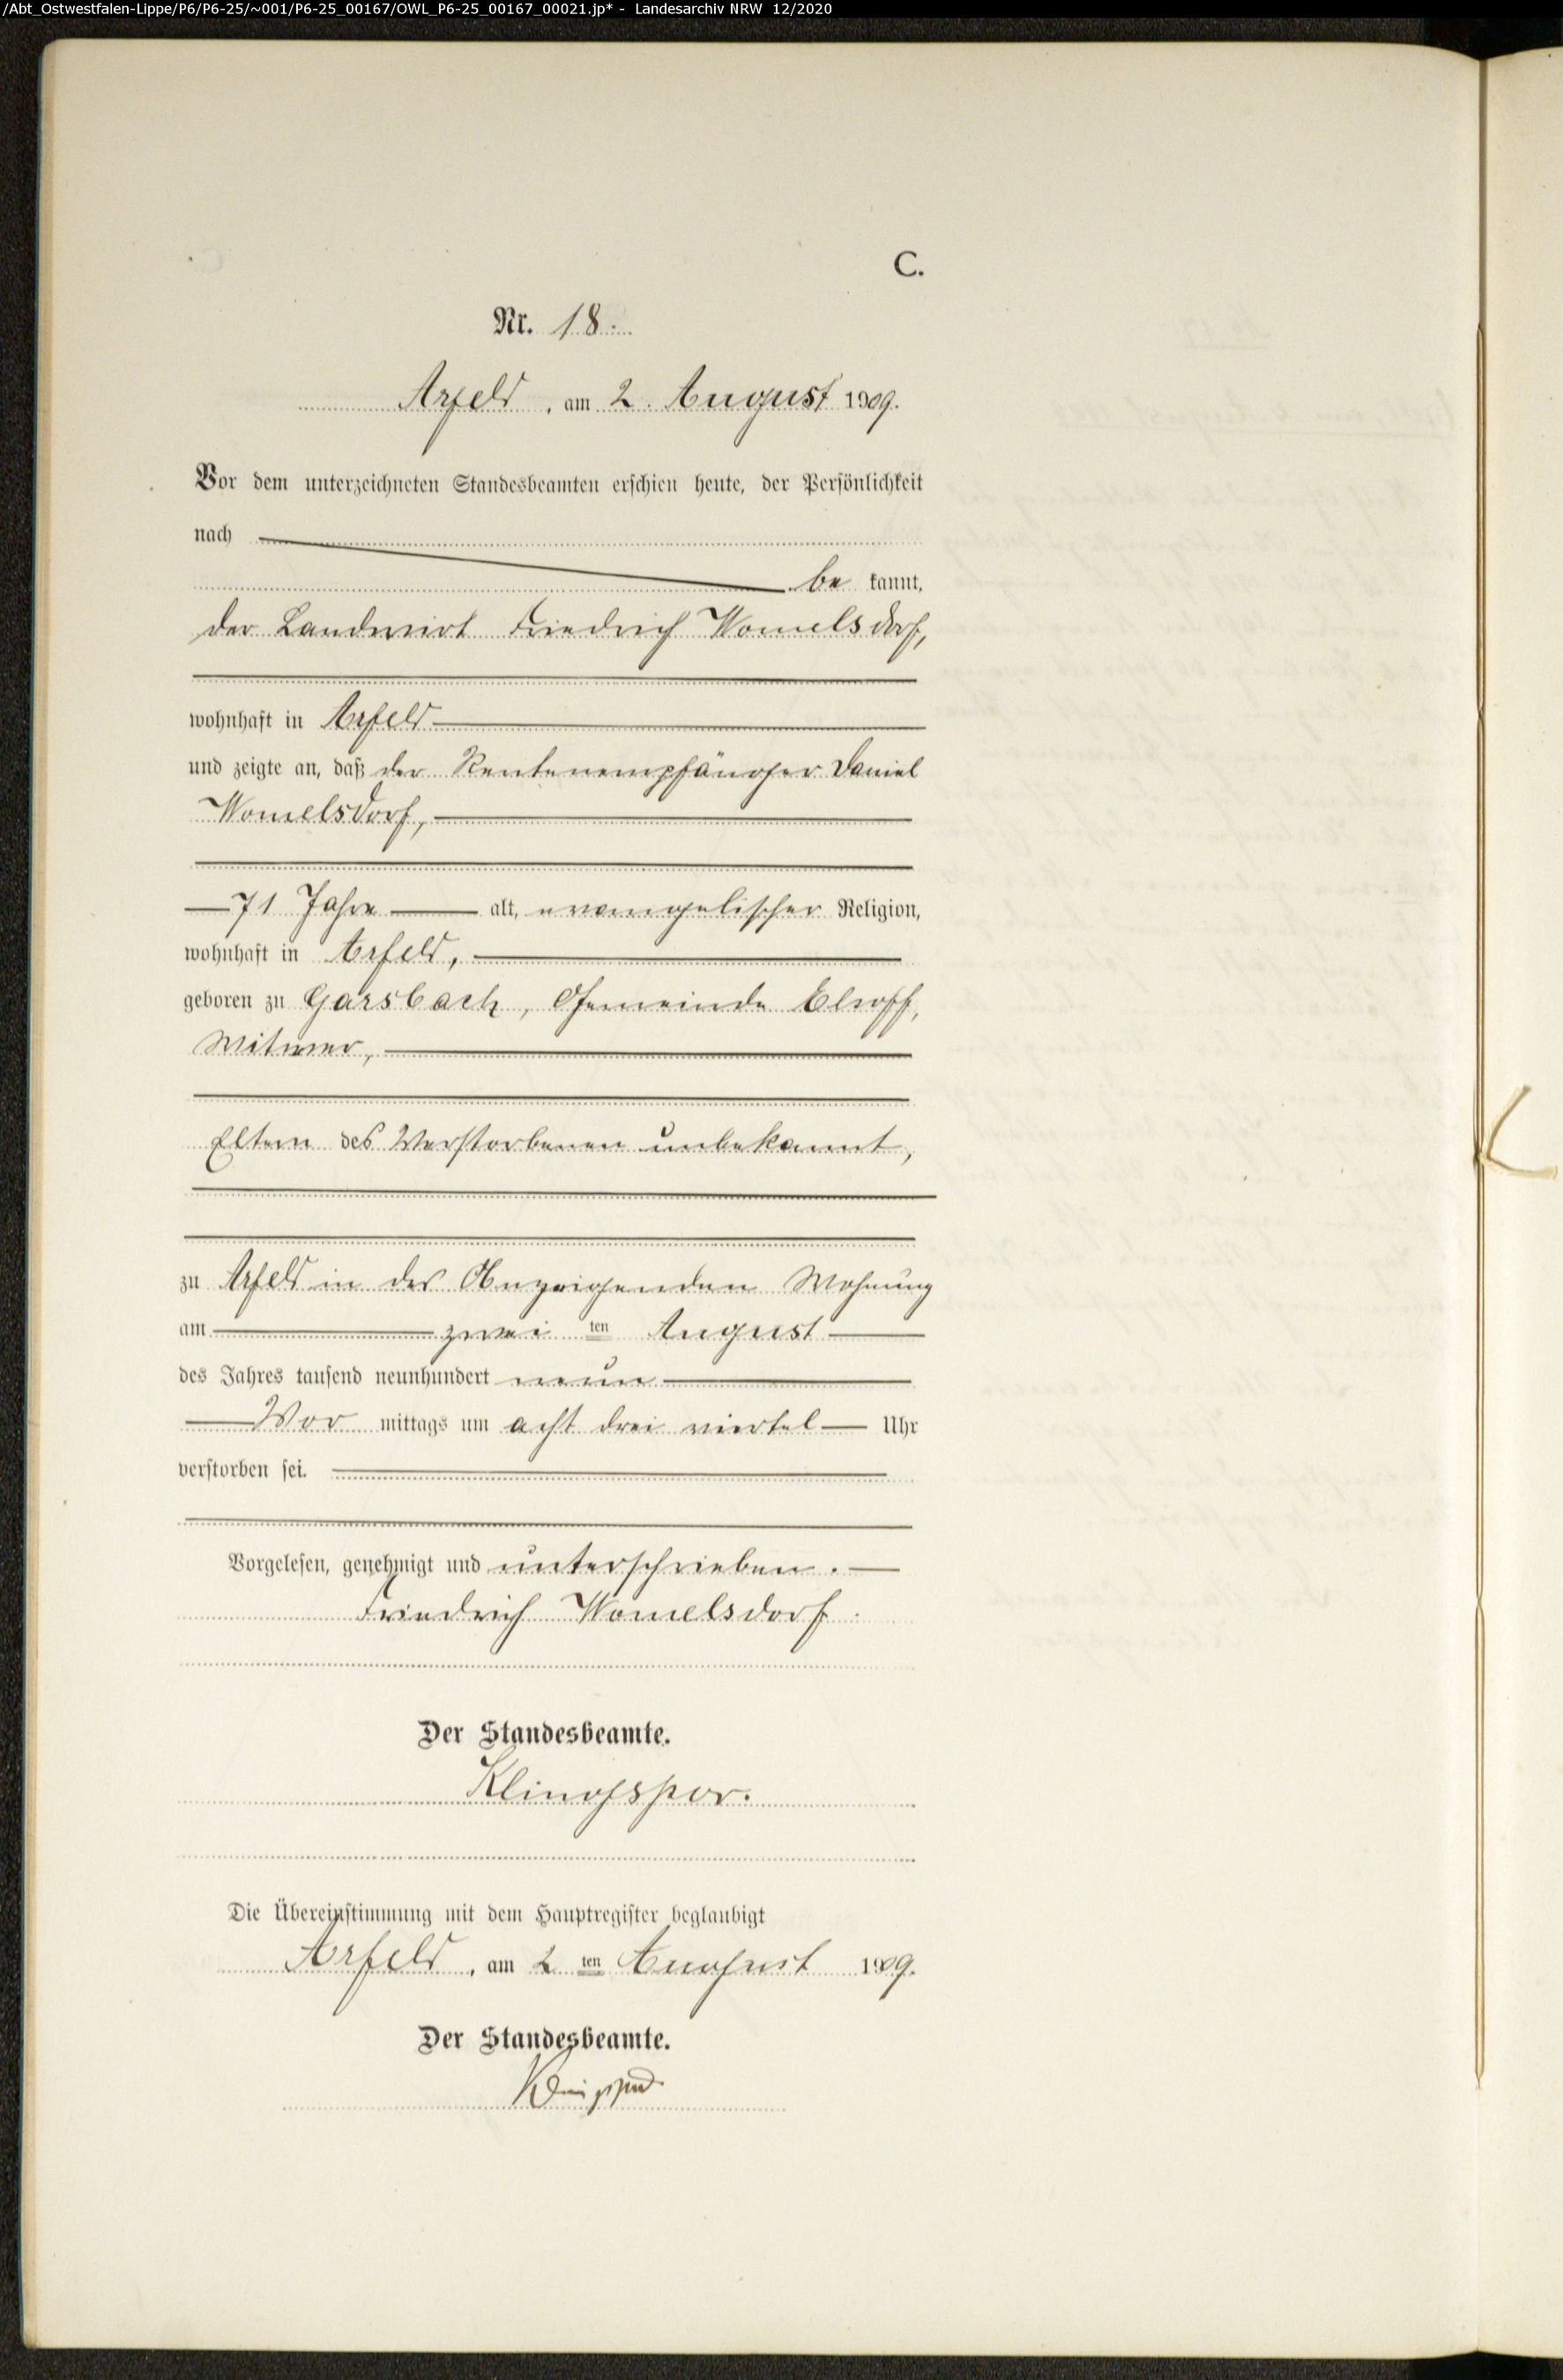 /Abt_Ostwestfalen-Lippe/P6/P6-25/~001/P6-25_00167/OWL_P6-25_00167_00021.jp* - Landesarchiv NRW 12/2020
C.
Nr. 18.
Arfeld, am 2. August 1909.
Vor dem unterzeichneten Standesbeamten erschien heute, der Persönlichkeit
nach
be kannt,
der Landwirt Friedrich Womelsdorf,
wohnhaft in Arfeld
und zeigte an, daß der Rentenempfänger Daniel
Womelsdorf,
71 Jahre alt, evangelischer Religion,
wohnhaft in Arfeld,
geboren zu Garsbach, Gemeinde Elsoff,
Witwer,
Eltern des Verstorbenen unbekannt,
zu Arfeld in des Anzeigenden Wohnung
am zwei ten August
des Jahres tausend neunhundert neun
Vor mittags um acht drei viertel Uhr
verstorben sei.
Vorgelesen, genehmigt und unterschrieben.
Friedrich Womelsdorf.
Der Standesbeamte.
Klingspor.
Die Übereinstimmung mit dem Hauptregister beglaubigt
Arfeld, am 2 ten August 1909.
Der Standesbeamte.
Klingspor